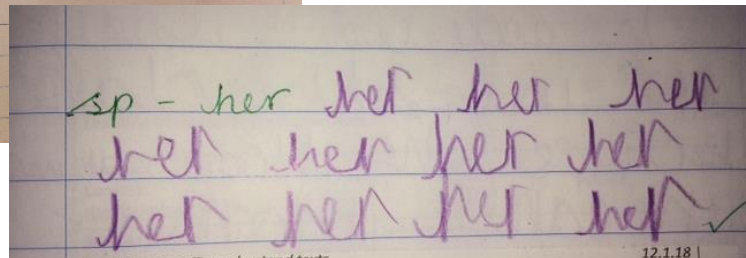 sp - her her her her
her her her her
her her her her
12.1.18